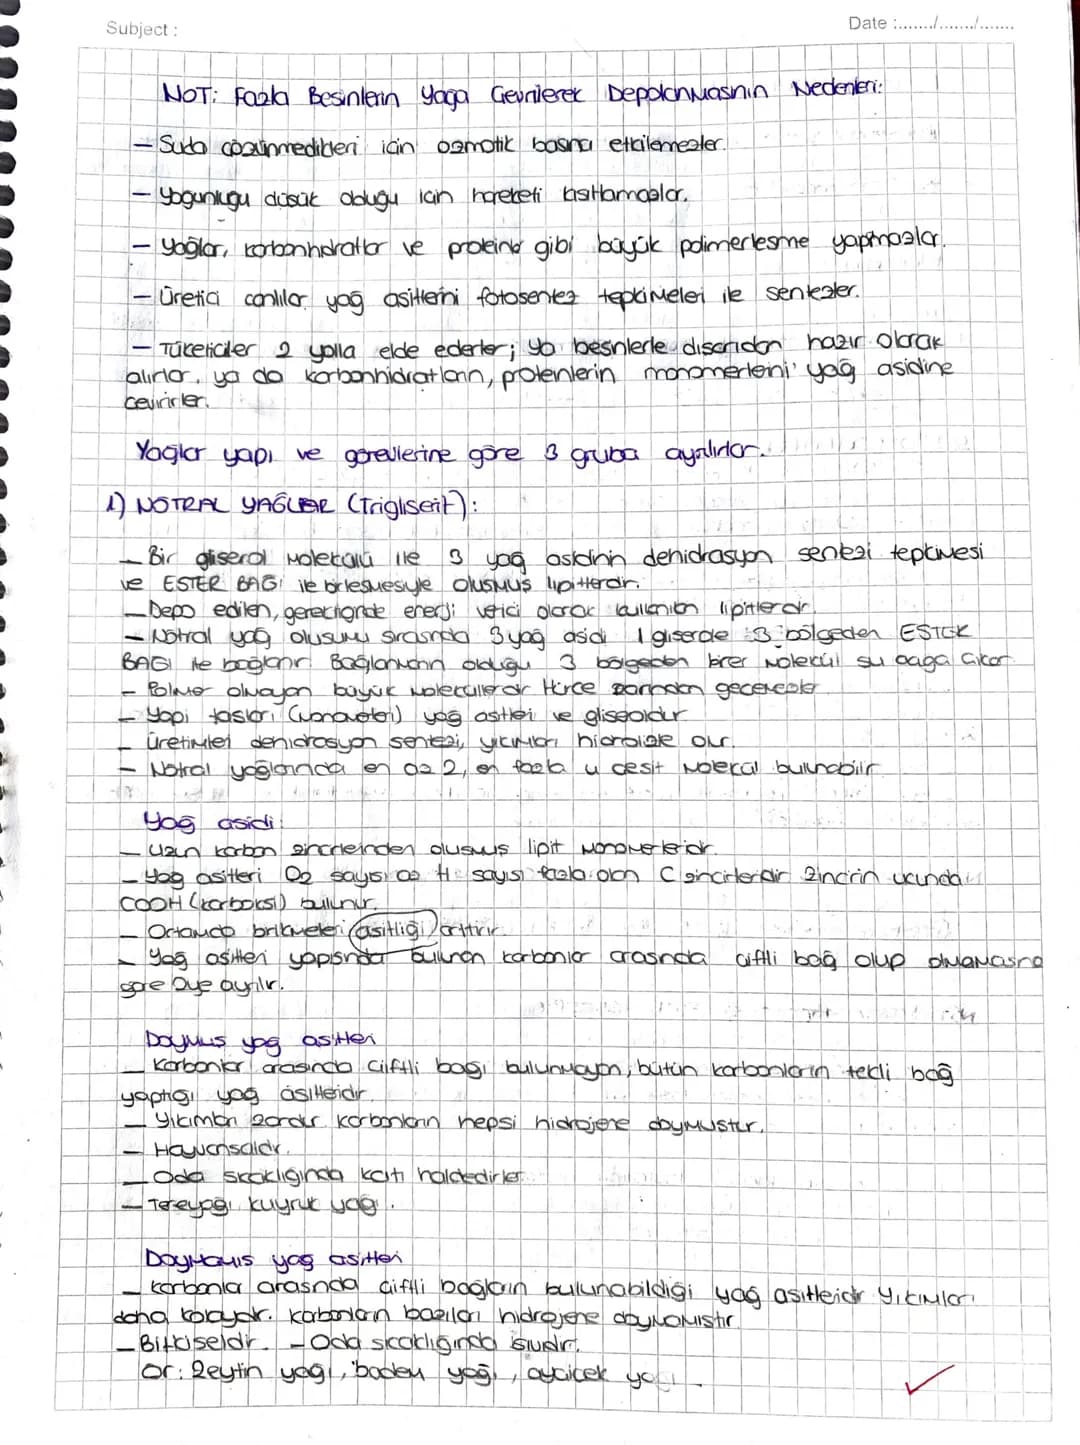 Subject :
Date :......../......../.......
NOT: Fazla Besinlerin Yağa Çevrilerek Depolanmasının Nedenleri:
– Suda çözünmedikleri için osmotik basıncı etkilemezler.
– Yoğunluğu düşük olduğu için hareketi kısıtlamazlar.
– Yağlar, karbonhidratlar ve proteinler gibi büyük polimerleşme yapmazlar.
– Üretici canlılar yağ asitlerini fotosentez tepkimeleri ile sentezler.
– Tüketiciler 2 yolla elde ederler; ya besinlerle dışarıdan hazır olarak
alırlar, ya da karbonhidratların, proteinlerin monomerlerini yağ asidine
çevirirler.
Yağlar yapı ve görevlerine göre 3 gruba ayrılırlar.
1) NÖTRAL YAĞLAR (Trigliserit):
– Bir gliserol molekülü ile 3 yağ asidinin dehidrasyon sentezi tepkimesi
ve ESTER BAĞI ile birleşmesiyle oluşmuş lipitlerdir.
– Depo edilen, gerektiğinde enerji verici olarak kullanılan lipitlerdir.
– Nötral yağ oluşumu sırasında 3 yağ asidi 1 gliserole 3 bölgeden ESTER
BAĞI ile bağlanır. Bağlanmanın olduğu 3 bölgeden birer molekül su açığa çıkar.
– Polimer olmayan büyük moleküllerdir. Hücre zarından geçemezler.
– Yapı taşları (monomerleri) yağ asitleri ve gliseroldür.
– Üretimleri dehidrasyon sentezi, yıkımları hidrolizle olur.
– Nötral yağlarında en az 2, en fazla 4 çeşit molekül bulunabilir.
Yağ asidi:
– Uzun karbon zincirlerinden oluşmuş lipit monomerleridir.
– Yağ asitleri O2 sayısı az H sayısı fazla olan C zincirleridir. Zincirin ucunda
COOH (karboksil) bulunur.
– Ortamda birikmeleri asitliği arttırır.
– Yağ asitleri yapısında bulunan karbonlar arasında çiftli bağ olup olmamasına
göre 2'ye ayrılır.
Doymuş yağ asitleri
– Karbonlar arasında çiftli bağı bulunmayan, bütün karbonların tekli bağ
yaptığı yağ asitleridir.
– Yıkımları zordur. Karbonların hepsi hidrojene doymuştur.
– Hayvansaldır.
– Oda sıcaklığında katı haldedirler.
– Tereyağı, kuyruk yağı.
Doymamış yağ asitleri
– Karbonlar arasında çiftli bağların bulunabildiği yağ asitleridir. Yıkımları
daha kolaydır. Karbonların bazıları hidrojene doymamıştır.
– Bitkiseldir. – Oda sıcaklığında sıvıdır.
Ör: Zeytin yağı, badem yağı, ayçiçek yağı.